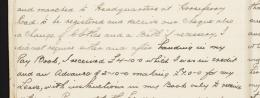 and marched to Headquarters at Horseferry
Road to be registered and receive our cheques also
a change of clothes and a Bath if necessary, I
did not require either and after handing in my
Pay Book, I received £4-10-0 which I was in credit
and an advance of £2-10-0 making £7-0-0 for my
Leave, with instructions in my Book only to receive